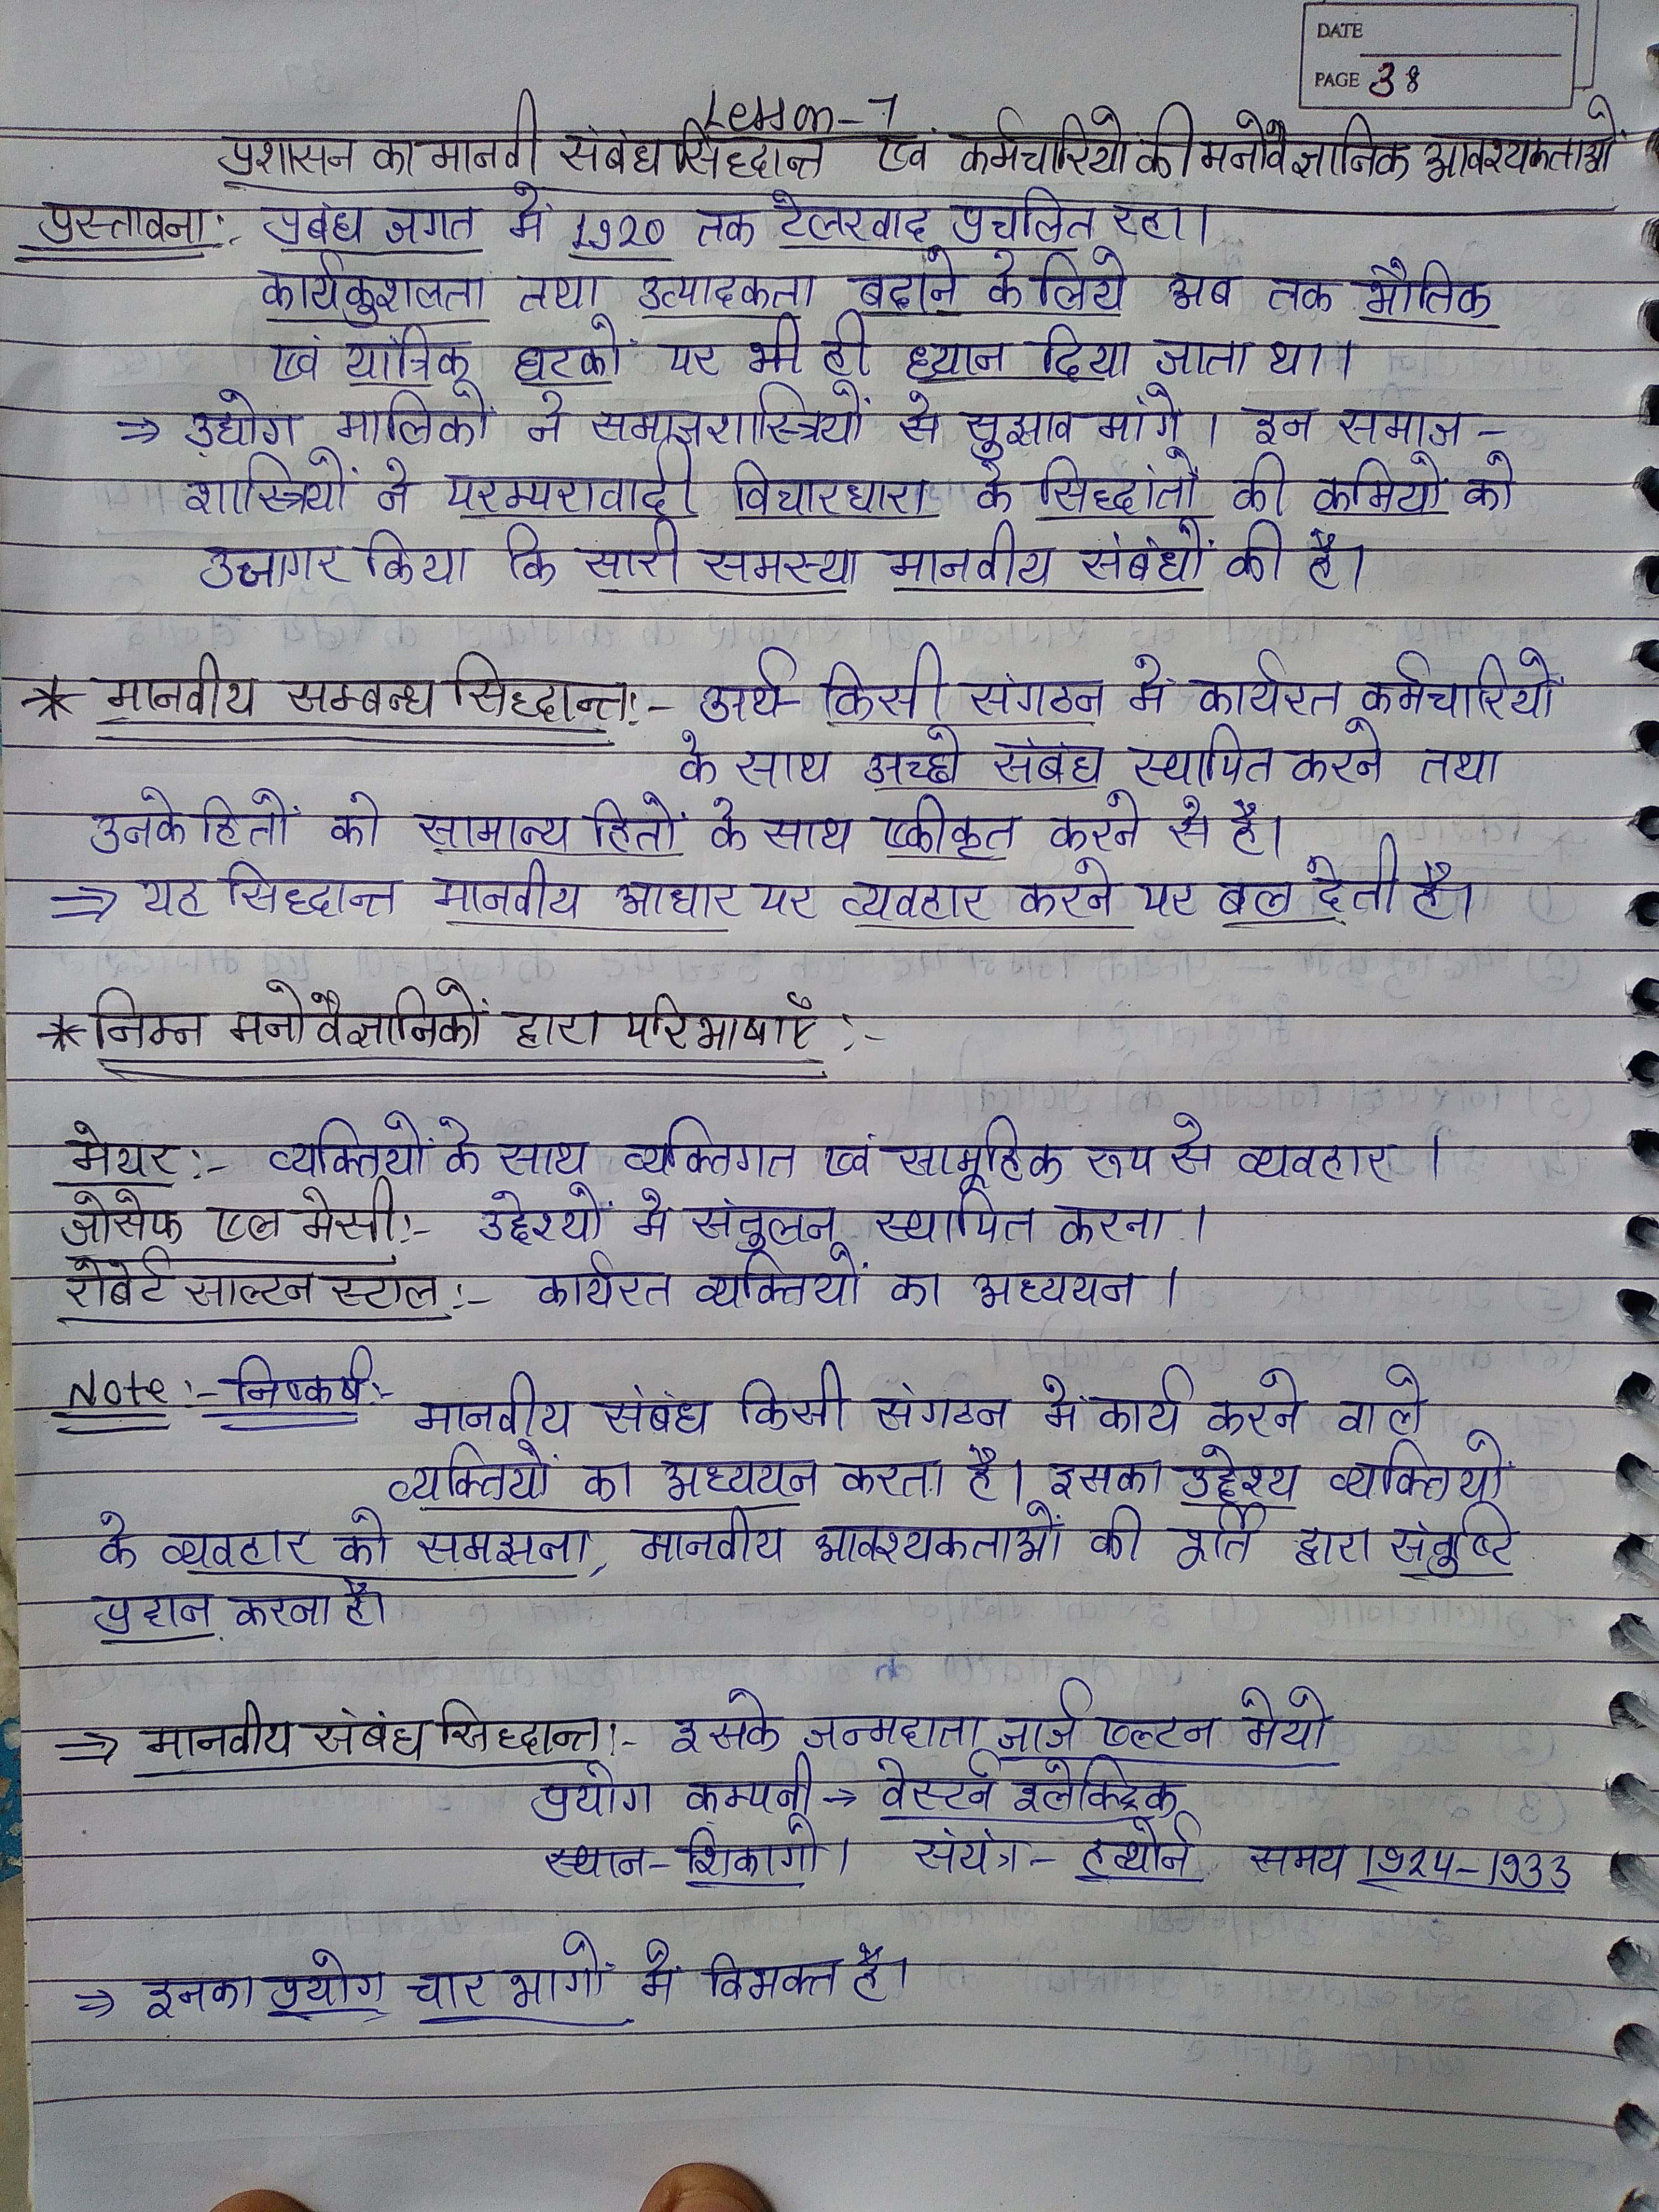 DATE
PAGE 38
Lesson-7
प्रशासन का मानवी संबंध सिद्धान्त एवं कर्मचारियों की मनोवैज्ञानिक आवश्यकताओं
प्रस्तावना:- प्रबंध जगत में 1920 तक टेलरवाद प्रचलित रहा।
कार्यकुशलता तथा उत्पादकता बढ़ाने के लिये अब तक भौतिक
एवं यांत्रिक घटकों पर भी ही ध्यान दिया जाता था।
⇒ उद्योग मालिकों ने समाजशास्त्रियों से सुझाव मांगे। इन समाज-
शास्त्रियों ने परम्परावादी विचारधारा के सिद्धांतों की कमियों को
उजागर किया कि सारी समस्या मानवीय संबंधों की है।
* मानवीय सम्बन्ध सिद्धान्त:- अर्थ किसी संगठन में कार्यरत कर्मचारियों
के साथ अच्छे संबंध स्थापित करने तथा
उनके हितों को सामान्य हितों के साथ एकीकृत करने से है।
⇒ यह सिद्धान्त मानवीय आधार पर व्यवहार करने पर बल देती है।
* निम्न मनोवैज्ञानिकों द्वारा परिभाषाएँ:-
मेयर:- व्यक्तियों के साथ व्यक्तिगत एवं सामूहिक रूप से व्यवहार।
जोसेफ एल मेसी:- उद्देश्यों में संतुलन स्थापित करना।
रोबर्ट साल्टन स्टाल:- कार्यरत व्यक्तियों का अध्ययन।
Note:- निष्कर्ष:-
मानवीय संबंध किसी संगठन में कार्य करने वाले
व्यक्तियों का अध्ययन करता है। इसका उद्देश्य व्यक्तियों
के व्यवहार को समझना, मानवीय आवश्यकताओं की पूर्ति द्वारा संतुष्टि
प्रदान करना है।
⇒ मानवीय संबंध सिद्धान्त:- इसके जन्मदाता जार्ज एल्टन मेयो
प्रयोग कम्पनी → वेस्टर्न इलेक्ट्रिक
स्थान- शिकागो। संयंत्र- हथ्योर्न समय 1924-1933
⇒ इनका प्रयोग चार भागों में विभक्त है।